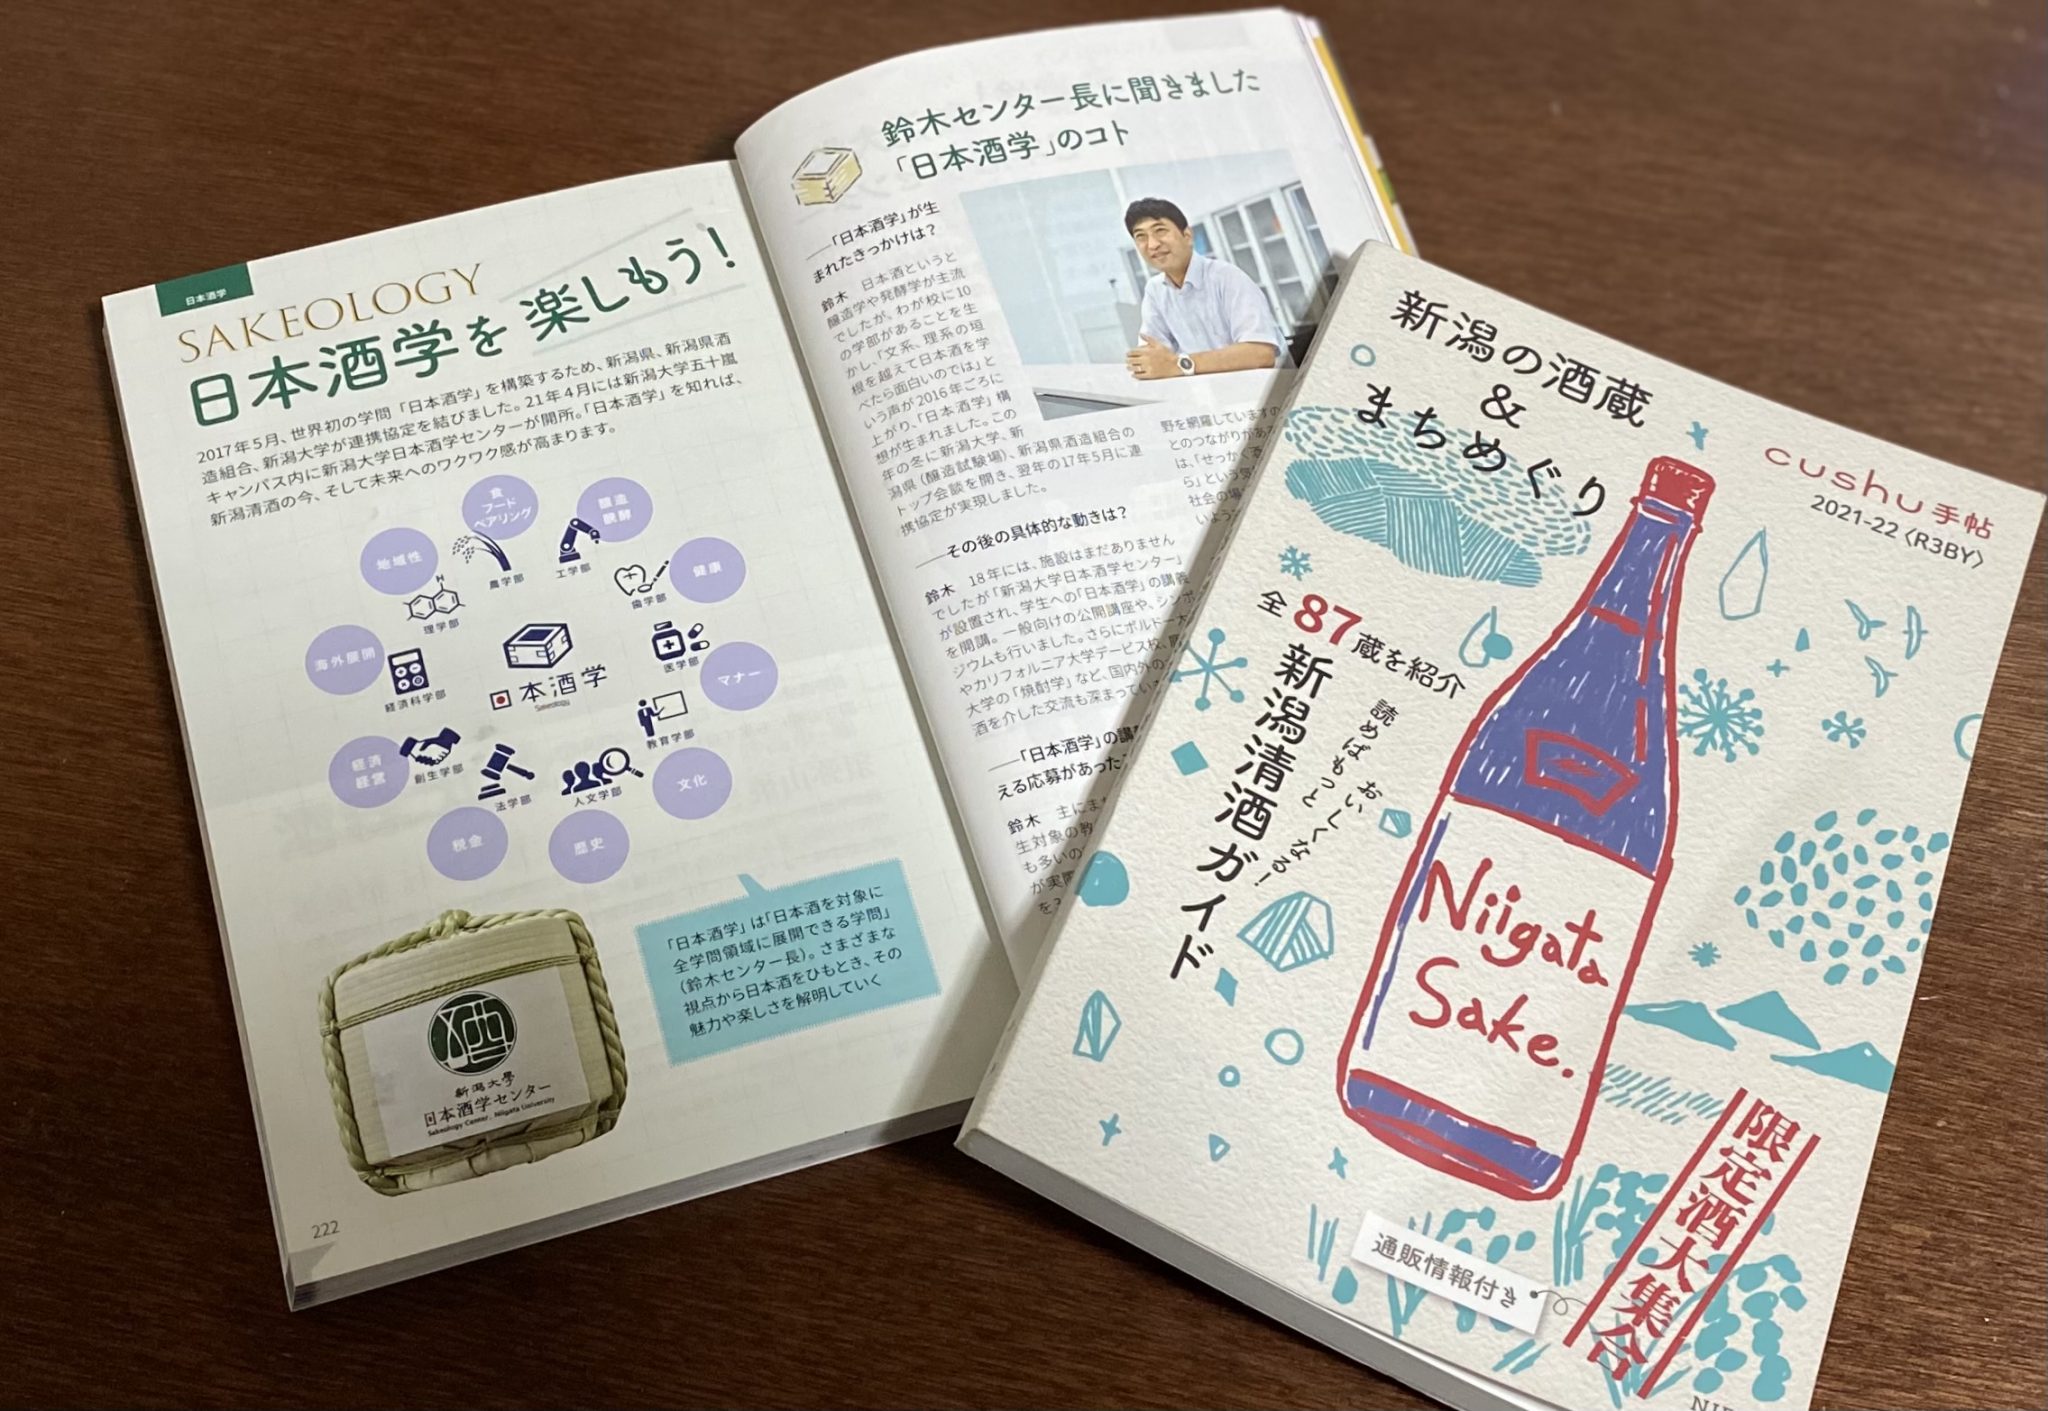 日本酒学
SAKEOLOGY
日本酒学を楽しもう!
2017年5月、世界初の学問「日本酒学」を構築するため、新潟県、新潟県酒
造組合、新潟大学が連携協定を結びました。21年4月には新潟大学五十嵐
キャンパス内に新潟大学日本酒学センターが開所。「日本酒学」を知れば、
新潟清酒の今、そして未来へのワクワク感が高まります。
食
フード
ペアリング
醸造
醗酵
地域性
農学部
工学部
健康
歯学部
理学部
海外展開
経済科学部
日本酒学
Sakeology
医学部
マナー
教育学部
経済
経営
創生学部
法学部
人文学部
文化
税金
歴史
「日本酒学」は「日本酒を対象に
全学問領域に展開できる学問」
(鈴木センター長)。さまざまな
視点から日本酒をひもとき、その
魅力や楽しさを解明していく
新潟大學
日本酒学センター
Sakeology Center, Niigata University
222
鈴木センター長に聞きました
「日本酒学」のコト
―「日本酒学」が生
まれたきっかけは?
鈴木 日本酒というと
醸造学や発酵学が主流
でしたが、わが校に10
の学部があることを生
かし、「文系、理系の垣
根を越えて日本酒を学
べたら面白いのでは」と
いう声が2016年ごろに
上がり、「日本酒学」構
想が生まれました。この
年の冬に新潟大学、新
潟県(醸造試験場)、新潟県酒造組合の
トップ会談を開き、翌年の17年5月に連
携協定が実現しました。
―その後の具体的な動きは?
鈴木 18年には、施設はまだありません
でしたが「新潟大学日本酒学センター」
が設置され、学生への「日本酒学」の講義
を開講。一般向けの公開講座や、シンポ
ジウムも行いました。さらにボルドー大
やカリフォルニア大学デービス校、
大学の「焼酎学」など、国内外の
酒を介した交流も深まってい
―「日本酒学」の講
える応募があった
鈴木 主にま
生対象の教
も多いの
が実
を
野を網羅しています
とのつながりがある
は、「せっかく
ら」という
社会の場
いよう
新潟の酒蔵
&
まちめぐり
cushu手帖
2021-22〈R3BY〉
全87蔵を紹介
読めば おいしくなる!
もっと
新潟清酒ガイド
Niigata
Sake.
限定酒大集合
通販情報付き